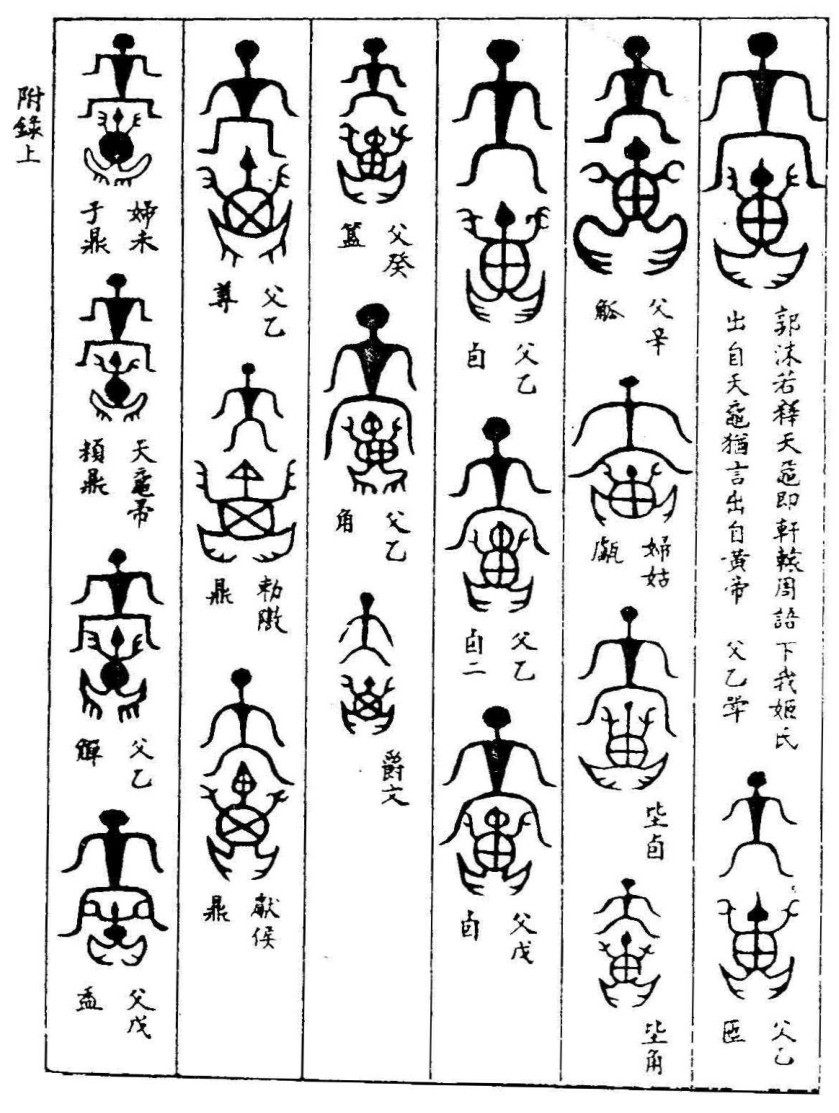 郭沫若釋天黽即軒轅周語下我姬氏
出自天黽猶言出自黃帝 父乙斝
父乙
匜
父辛
觚
婦姑
甗
坒卣
坒角
父乙
卣
父乙
卣二
父戊
卣
父癸
簋
父乙
角
爵文
父乙
尊
鼎
獻侯
鼎
婦未
于鼎
天黽帝
鼎
父乙
觶
父戊
盉
附錄上